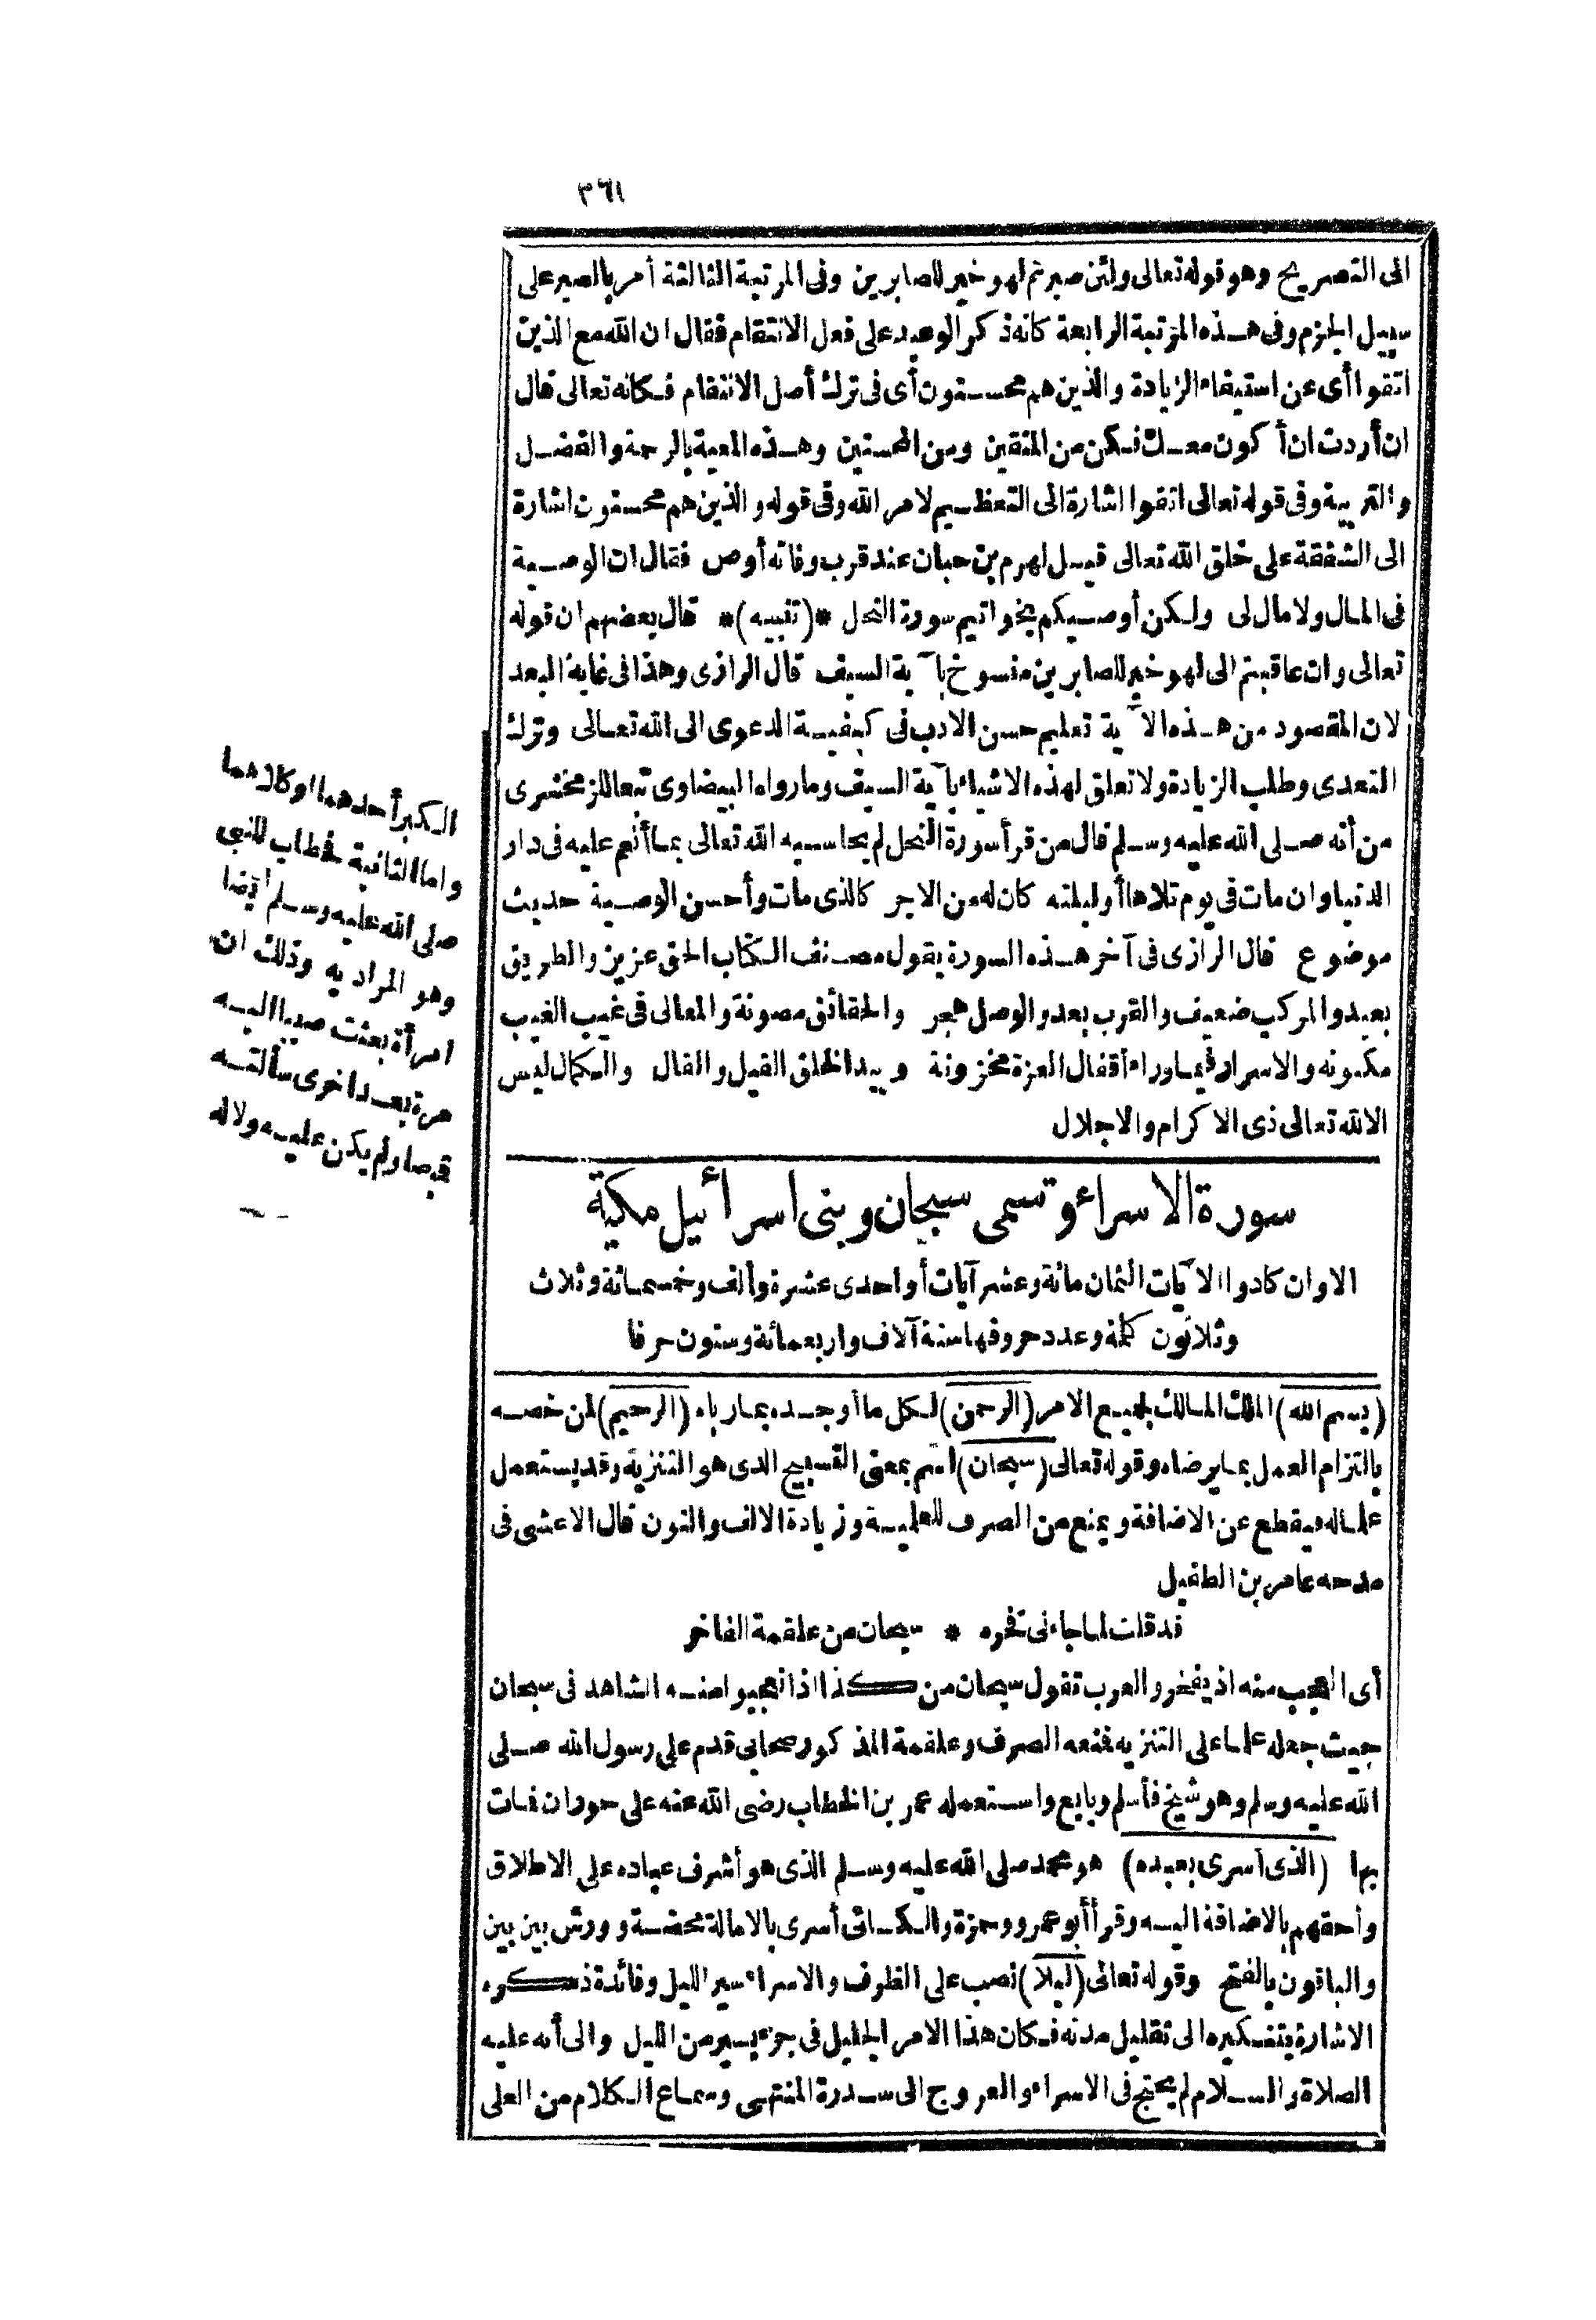 ٣٦١
الى التصريح وهو قوله تعالى ولئن صبرتم لهو خير للصابرين وفى المرتبة الثالثة أمر بالصبر على
سبيل الجزم وفى هذه المرتبة الرابعة كانه ذكر الوعيد على فعل الانتقام فقال ان الله مع الذين
اتقوا أى عن استيفاء الزيادة والذين هم محسنون أى فى ترك أصل الانتقام فكانه تعالى قال
ان أردت ان أكون معك فكن من المتقين ومن المحسنين وهذه المعية بالرحمة والفضل
والتربية وفى قوله تعالى اتقوا اشارة الى التعظيم لامر الله وفى قوله والذين هم محسنون اشارة
الى الشفقة على خلق الله تعالى قيل لهرم بن حبان عند قرب وفاته أوص فقال ان الوصية
فى المال ولا مال لى ولكن أوصيكم بخواتيم سورة النحل *(تنبيه)* قال بعضهم ان قوله
تعالى وان عاقبتم الى لهو خير للصابرين منسوخ بآية السيف قال الرازى وهذا فى غاية البعد
لان المقصود من هذه الآية تعليم حسن الادب فى كيفية الدعوى الى الله تعالى وترك
التعدى وطلب الزيادة ولا تعلق لهذه الاشياء بآية السيف وما رواه البيضاوى تبعا للزمخشرى
من أنه صلى الله عليه وسلم قال من قرأ سورة النحل لم يحاسبه الله تعالى بما أنعم عليه فى دار
الدنيا وان مات فى يوم تلاها أو ليلته كان له من الاجر كالذى مات وأحسن الوصية حديث
موضوع قال الرازى فى آخر هذه السورة يقول مصنف الكتاب الحق عزيز والطريق
بعيد والمركب ضعيف والقرب بعد والوصل هجر والحقائق مصونة والمعالى فى غيب الغيب
مكنونه والاسرار فيما وراء أقفال العزة مخزونة وبيد الخلق القيل والقال والكمال ليس
الا لله تعالى ذى الاكرام والاجلال
سورة الاسراء وتسمى سبحان وبنى اسرائيل مكية
الا وان كادوا الآيات الثمان مائة وعشر آيات أو احدى عشرة وألف وخمسمائة وثلاث
وثلاثون كلمة وعدد حروفها ستة آلاف واربعمائة وستون حرفا
(بسم الله) الملك المالك لجميع الامر (الرحمن) لكل ما أوجده بما رباه (الرحيم) لمن خصه
بالتزام العمل بما يرضاه وقوله تعالى (سبحان) اسم بمعنى التسبيح الذى هو التنزيه وقد يستعمل
علما له فيقطع عن الاضافة ويمنع من الصرف للعلمية وزيادة الالف والنون قال الاعشى فى
مدحه عامر بن الطفيل
قد قلت لما جاءنى فخره * سبحان من علقمة الفاخر
أى العجب منه اذ يفخر والعرب تقول سبحان من كذا اذا تعجبوا منه الشاهد فى سبحان
حيث جعله علما على التنزيه فمنعه الصرف وعلقمة المذكور صحابى قدم على رسول الله صلى
الله عليه وسلم وهو شيخ فأسلم وبايع واستعمله عمر بن الخطاب رضى الله عنه على حوران فمات
بها (الذى أسرى بعبده) هو محمد صلى الله عليه وسلم الذى هو أشرف عباده على الاطلاق
وأحقهم بالاضافة اليه وقرأ أبو عمرو وحمزة والكسائى أسرى بالامالة محضة وورش بين بين
والباقون بالفتح وقوله تعالى (ليلا) نصب على الظرف والاسراء سير الليل وفائدة ذكره
الاشارة بتنكيره الى تقليل مدته فكان هذا الامر الجليل فى جزء يسير من الليل والى أنه عليه
الصلاة والسلام لم يحتج فى الاسراء والعروج الى سدرة المنتهى وسماع الكلام من العلى
الكبر أحدهما او كلاهما
واما الثانية فخطاب للنبى
صلى الله عليه وسلم أيضا
وهو المراد به وذلك ان
امرأة بعثت صبيا اليه
مرة بعد اخرى سألته
قميصا ولم يكن عليه ولا له